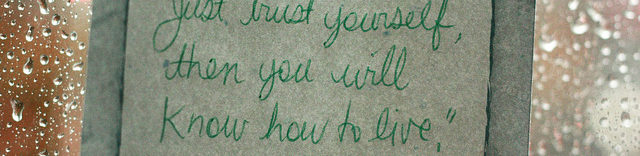 Just trust yourself,
then you will
Know how to live."